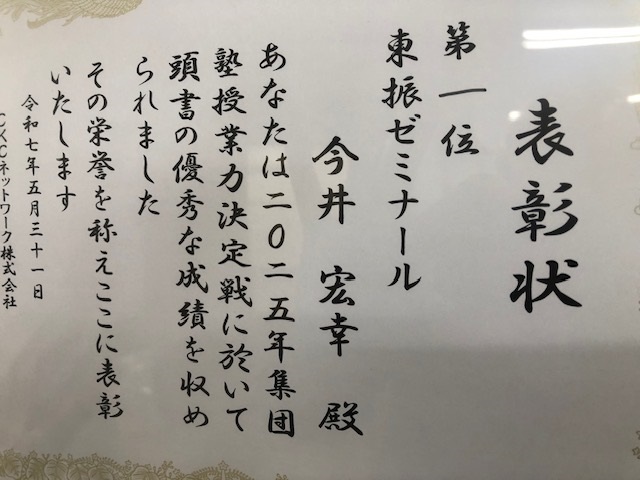 表彰状
第一位
東振ゼミナール
今井 宏幸 殿
あなたは二〇二五年集団
塾授業力決定戦に於いて
頭書の優秀な成績を収め
られました
その栄誉を称えここに表彰
いたします
令和七年五月三十一日
CKCネットワーク株式会社